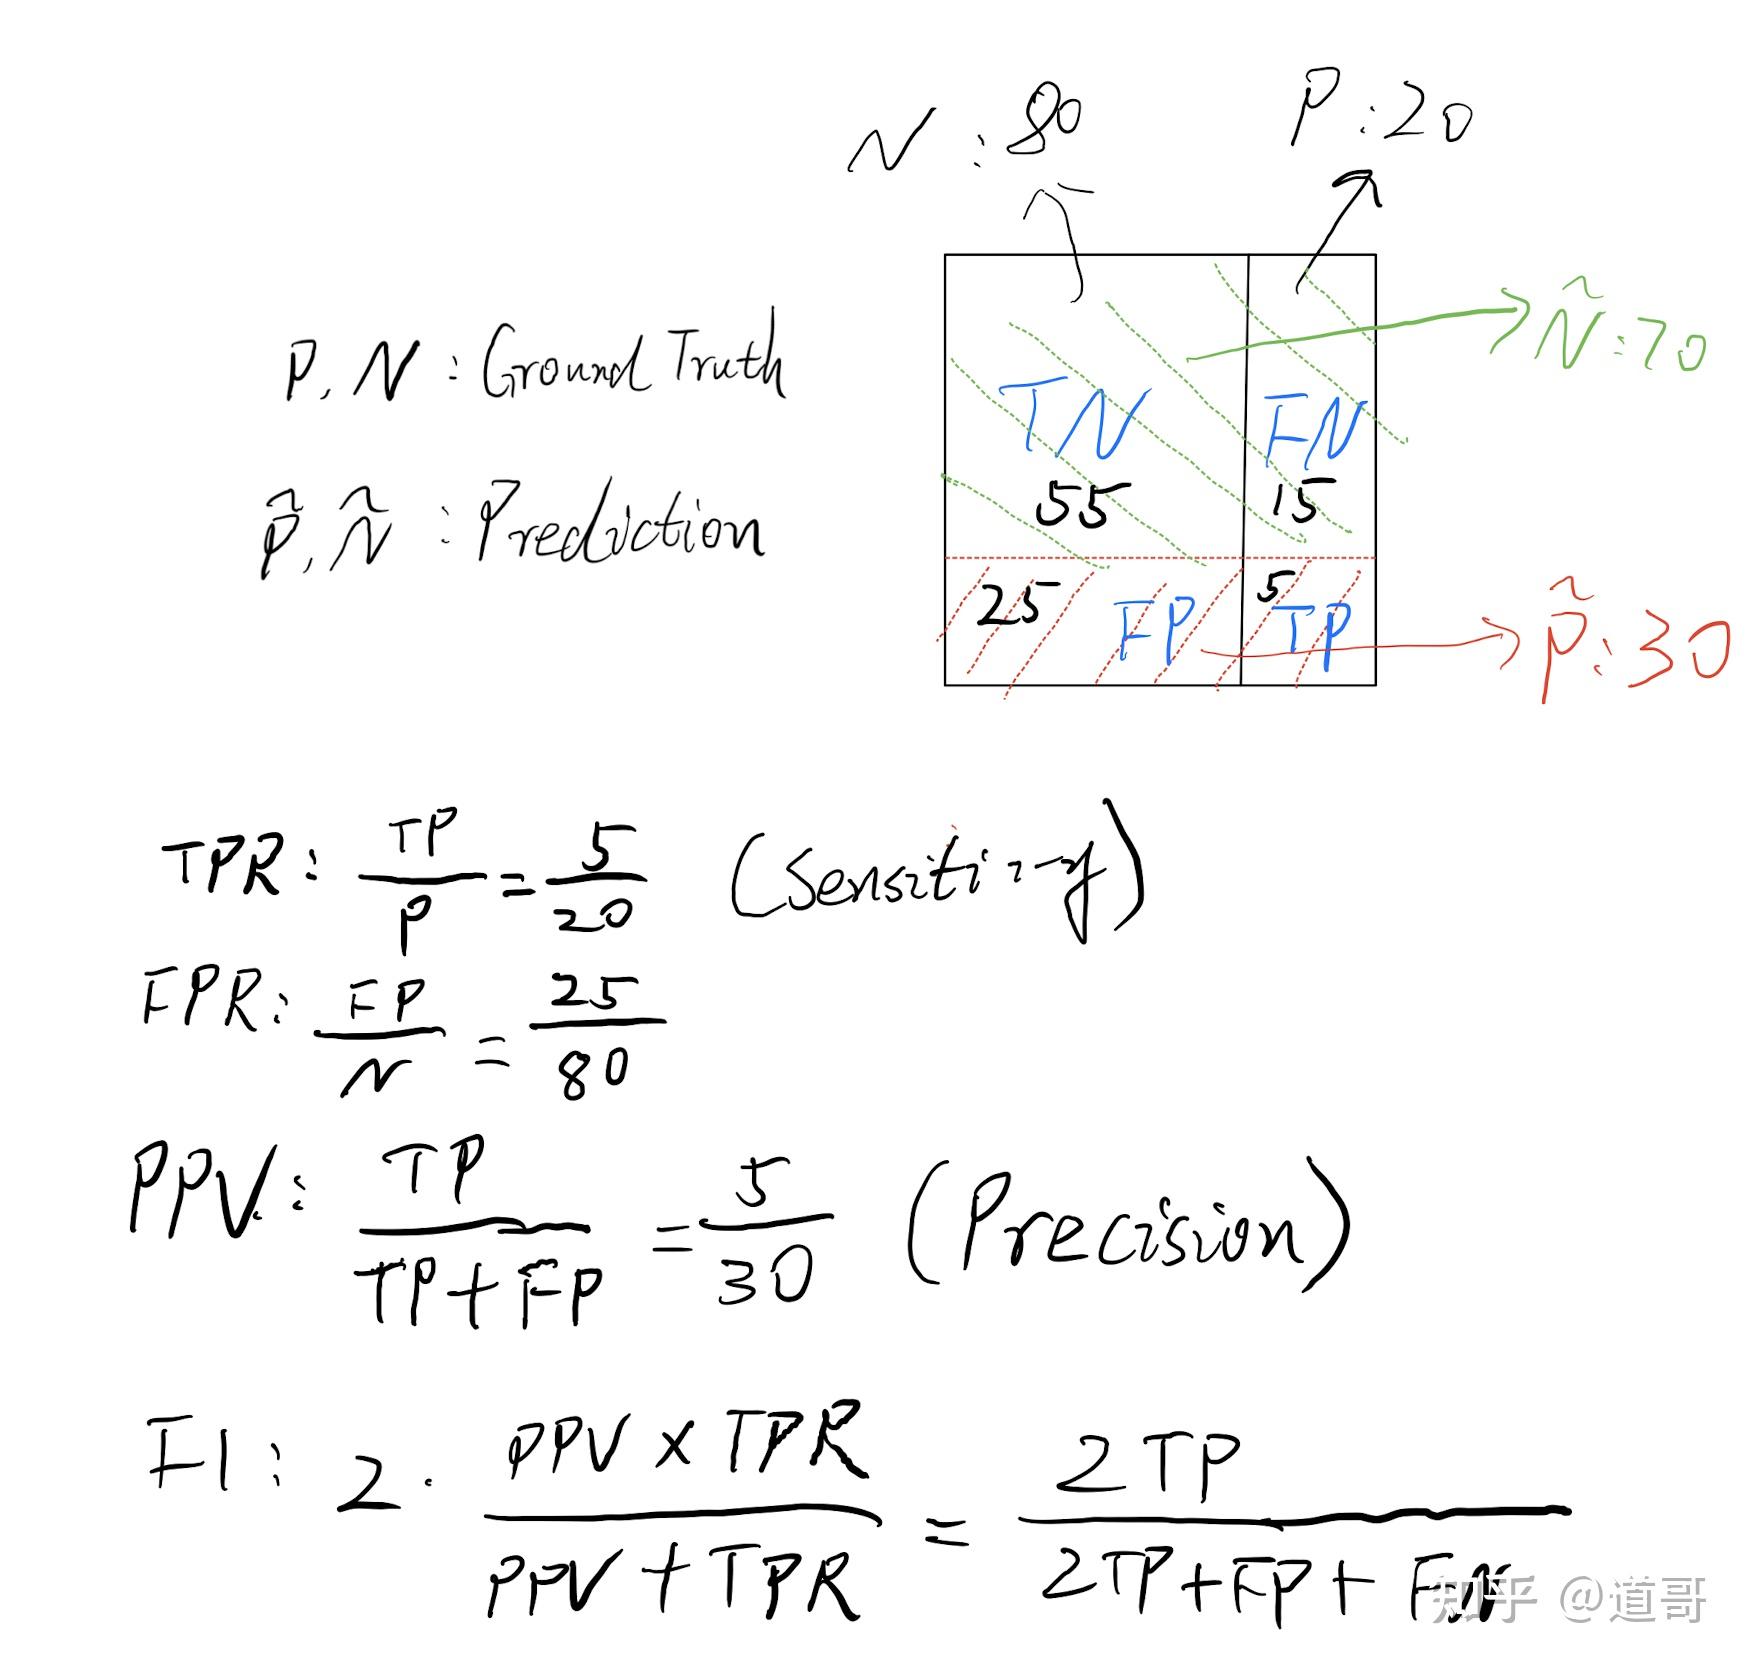 N : 80
P : 20
Ñ : 70
P, N : Ground Truth
TN
FN
55
15
P̃, Ñ : Prediction
25
FP
5
TP
P̃ : 30
TPR : TP / P = 5 / 20 (Sensitivity)
FPR : FP / N = 25 / 80
PPV : TP / TP + FP = 5 / 30 (Precision)
F1 : 2 · PPV × TPR / PPV + TPR = 2TP / 2TP + FP + FN
知乎 @道哥